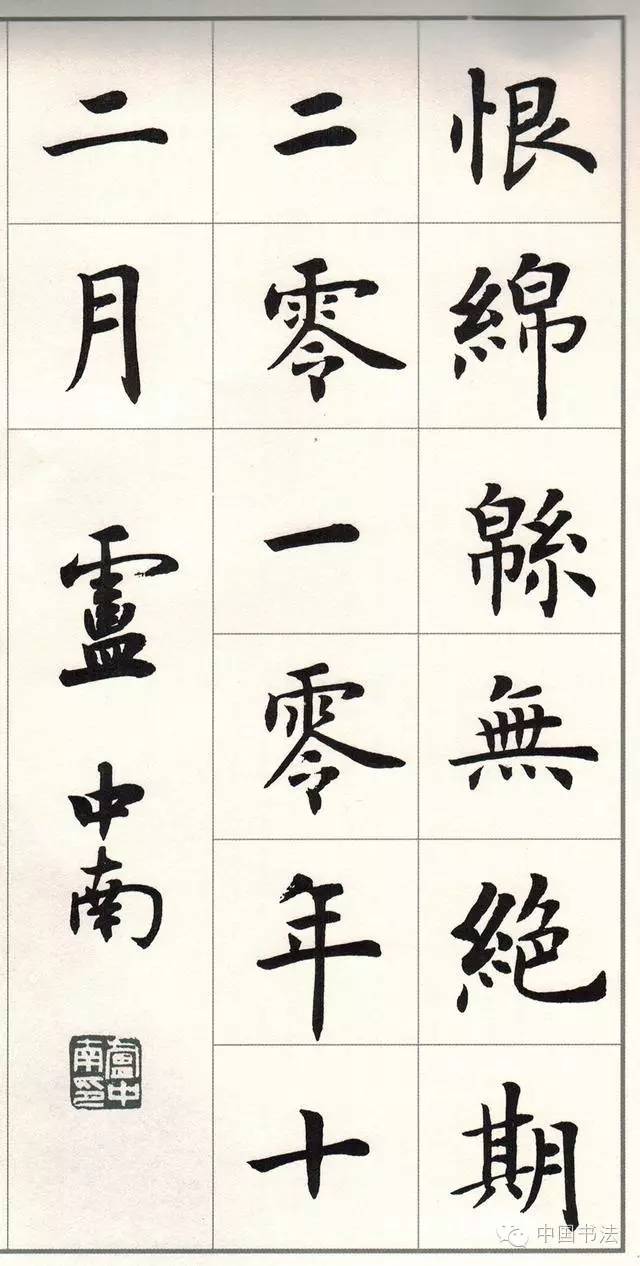 恨綿緜無絕期
二零一零年十
二月
盧中南
盧中南印
中国书法